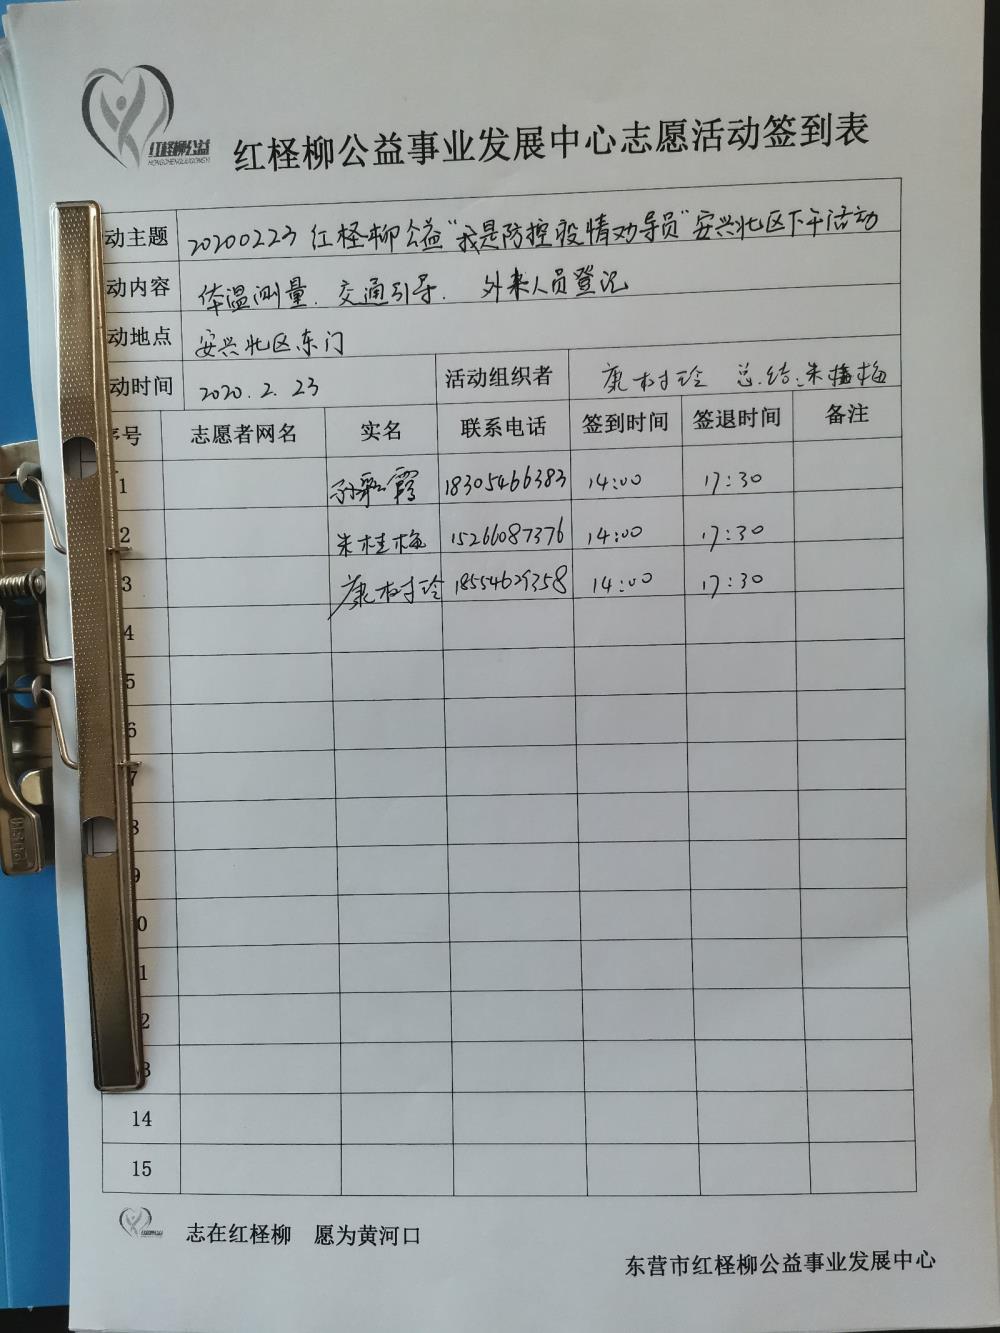 红柽柳公益
HONGCHENGLIUGONGYI
红柽柳公益事业发展中心志愿活动签到表
动主题 20200223 红柽柳公益“我是防控疫情劝导员”安兴北区下午活动
动内容 体温测量. 交通引导. 外来人员登记
动地点 安兴北区东门
动时间 2020.2.23 活动组织者 康树玲 总结:朱桂梅
序号 志愿者网名 实名 联系电话 签到时间 签退时间 备注
1 孙彩霞 18305466383 14:00 17:30
2 朱桂梅 15266087376 14:00 17:30
3 康树玲 18554629358 14:00 17:30
4
5
6
7
8
9
0
1
2
3
14
15
志在红柽柳 愿为黄河口
东营市红柽柳公益事业发展中心